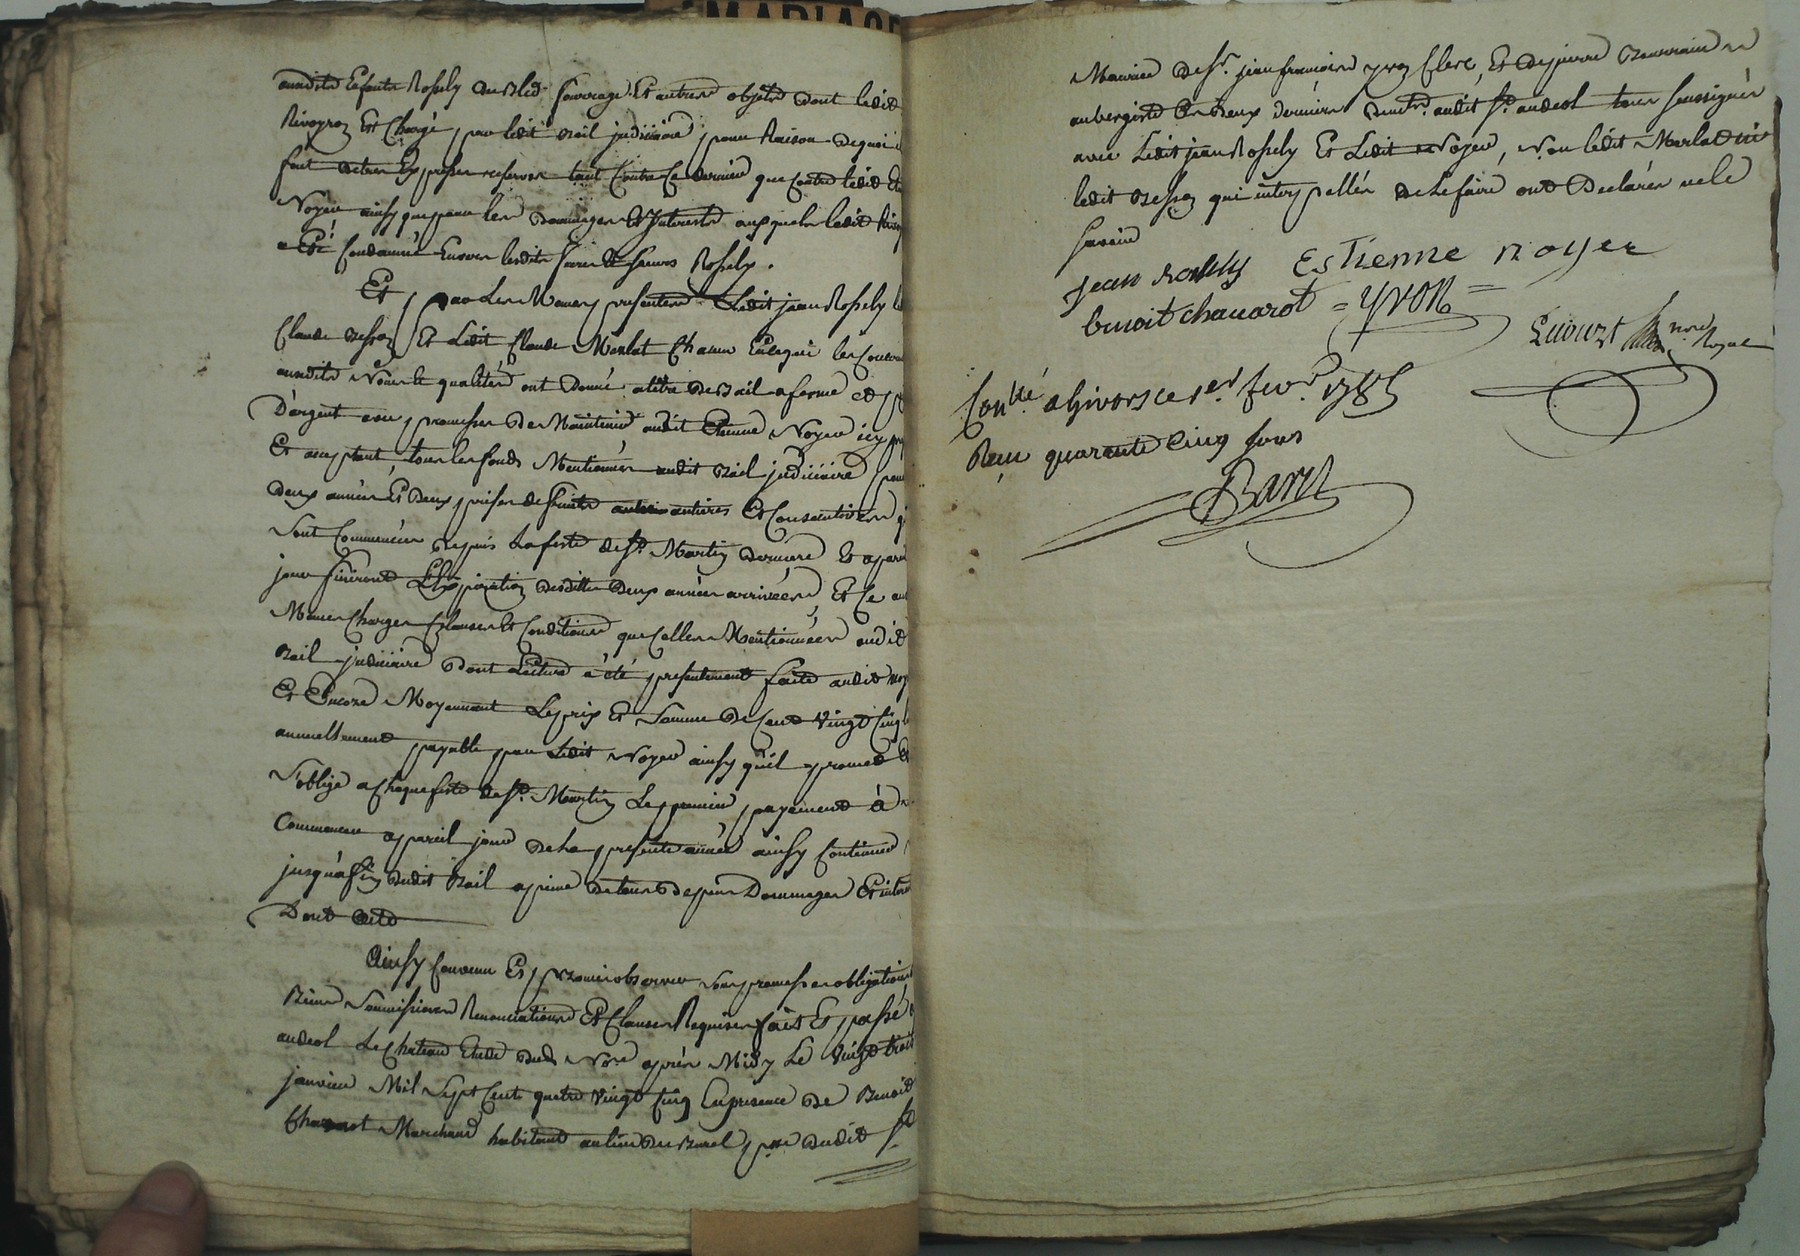 MARIAGE
audits Enfants Rossely du bled fourrage Et autres objets dont ledit
Rivoyroz Est Chargé par ledit Bail judiciaire, pour Raison de quoi il
fait toutes Expresses reserves tant Contre Ce dernier que Contre ledit
Noyer ainsy que pour les dommages Et Interests auxquels ledit
a Eté Condamné Envers lesdits freres Et soeurs Rossely.
Et par les Memes presentes Ledit jean Rossely
Claude Et Ledit Claude Merlat Chacun
audits Noms Et qualités ont Donné a titre de Bail a ferme et
D'argent avec promesses de Maintenir audit Etienne Noyer icy
Et acceptant, tous les fonds Mentionnés audit Bail judiciaire pour
deux années Et Deux prises de fruits entieres Et Consecutives
Sont Commencées depuis La feste de St. Martin derniere Et a pareil
jour finiront L'Expiration desdittes Deux années arrivées, Et Ce aux
Memes Charges Clauses Et Conditions que Celles Mentionnées audit
Bail judiciaire dont Lecture a été presentement faite audit
Et Encore Moyennant Le prix Et Somme de Cent vingt Cinq
annuellement payable par Ledit Noyer ainsy qu'il promet Et
s'oblige a Chaque feste de St. Martin Le premier payement à
Commencer a pareil jour de La presente année ainsy Continuer
jusqu'à fin dudit Bail a peine de tous depens Dommages Et
Dont acte
Ainsy Convenu Et promis observer sous promesses obligations
Biens Soumissions Renonciations Et Clauses Requises fait Et passé
andeol Le Chateau Etude dudt Nore après Midy Le vingt trois
janvier Mil Sept Cents quatre vingt Cinq En presence de Benoit
Marchand habitant au lieu du Burel psse dudit St
Maurice de Sr. jean francois yvon Clerc, Et de pierre
aubergiste Ces deux derniers audit St. andeol tous soussignés
avec Ledit jean Rossely Et Ledit Noyer, Non ledit Merlat ni
ledit qui interpellés de Le faire ont Declarés ne le
savoir
jean Rossely Estienne noyer
benoit chavarot = yvon =
nore Royal
Conllé a Givors ce 1er fevr. 1785
Reçu quarante Cinq sous